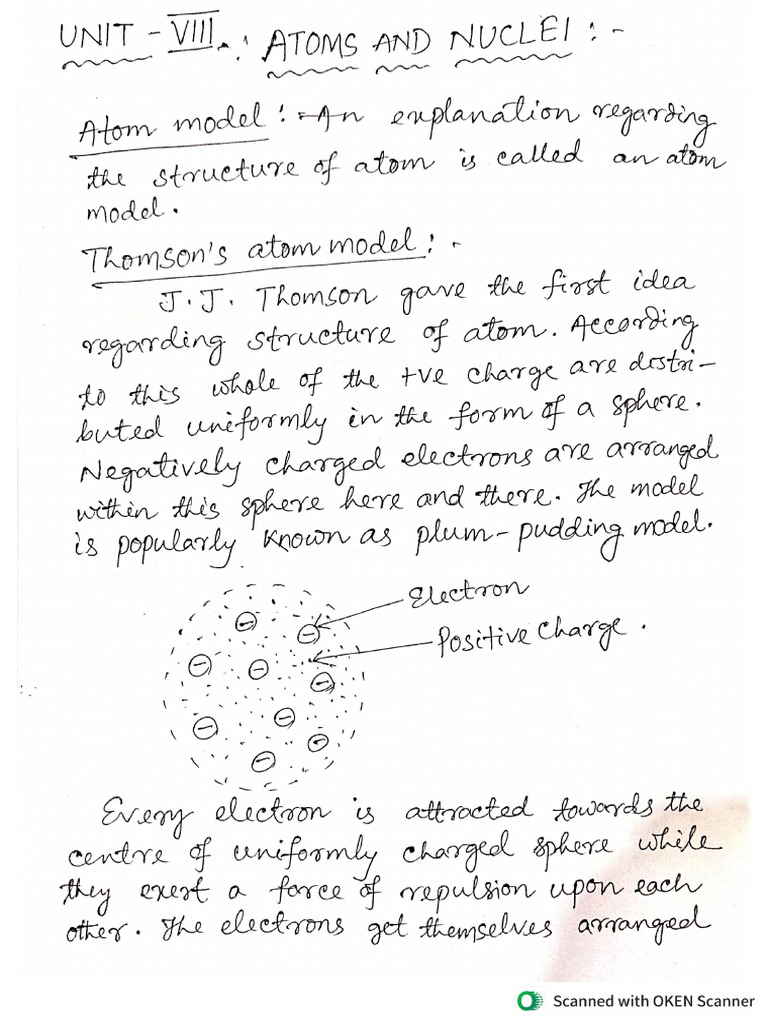 UNIT - VIII. : ATOMS AND NUCLEI : -
Atom model : - An explanation regarding
the structure of atom is called an atom
model.
Thomson's atom model : -
J. J. Thomson gave the first idea
regarding structure of atom. According
to this whole of the +ve charge are distri-
buted uniformly in the form of a sphere.
Negatively charged electrons are arranged
within this sphere here and there. The model
is popularly known as plum-pudding model.
Electron
Positive Charge.
Every electron is attracted towards the
centre of uniformly charged sphere while
they exert a force of repulsion upon each
other. The electrons get themselves arranged
Scanned with OKEN Scanner